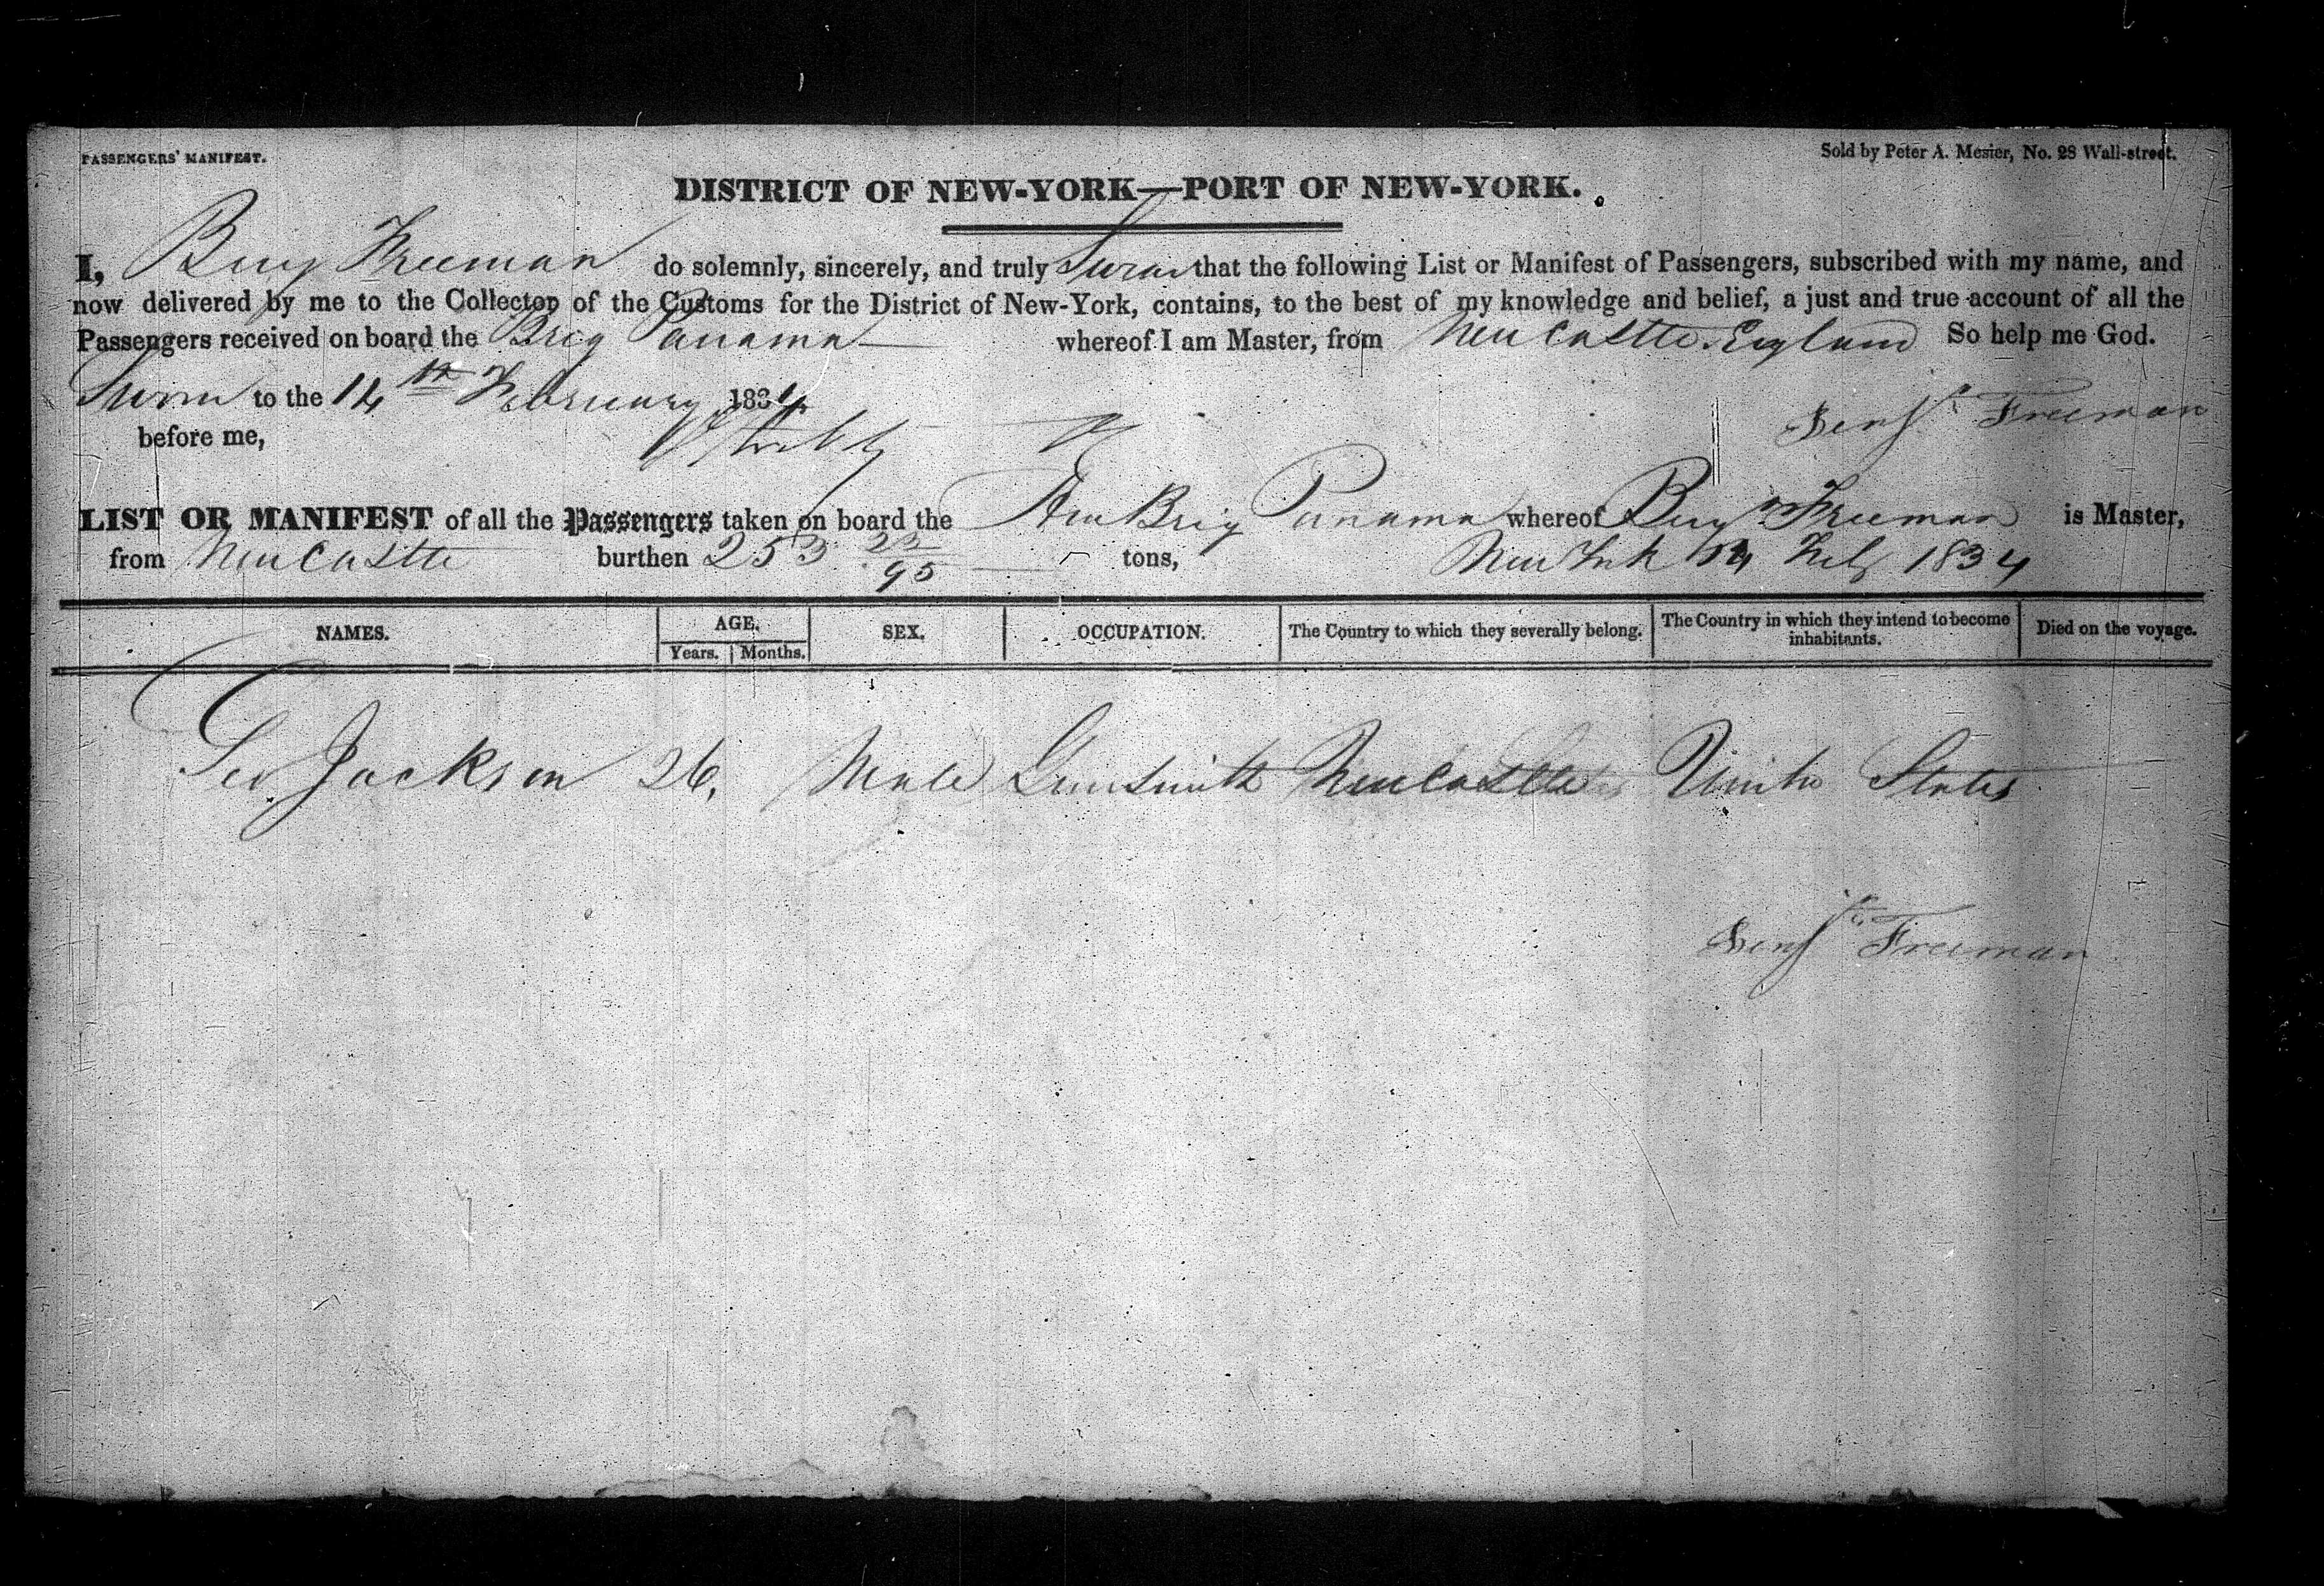 PASSENGERS' MANIFEST.
Sold by Peter A. Mesier, No. 28 Wall-street.
DISTRICT OF NEW-YORK—PORT OF NEW-YORK.
I, Benj Freeman do solemnly, sincerely, and truly Swear that the following List or Manifest of Passengers, subscribed with my name, and
now delivered by me to the Collector of the Customs for the District of New-York, contains, to the best of my knowledge and belief, a just and true account of all the
Passengers received on board the Brig Panama whereof I am Master, from New Castle England So help me God.
Sworn to the 14th February 1834
Benjn Freeman
before me,
LIST OR MANIFEST of all the Passengers taken on board the Am Brig Panama whereof Benjn Freeman is Master,
from New Castle burthen 253 22/95 tons, New York 14 Feby 1834
NAMES. AGE. SEX. OCCUPATION. The Country to which they severally belong. The Country in which they intend to become inhabitants. Died on the voyage.
Years. Months.
Geo Jackson 26, Male Gunsmith New Castle United States
Benjn Freeman